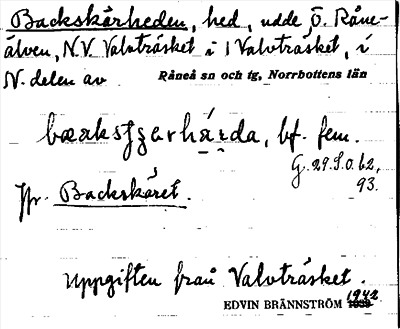 Backskärheden, hed, udde Ö. Råne-
älven, N.V. Valvträsket i 1 Valvträsket, i
N. delen av Råneå sn och tg, Norrbottens län
bf. fem.
G. 29. S. o. 62,
93.
Jfr. Backskäret.
Uppgiften från Valvträsket.
EDVIN BRÄNNSTRÖM 1942